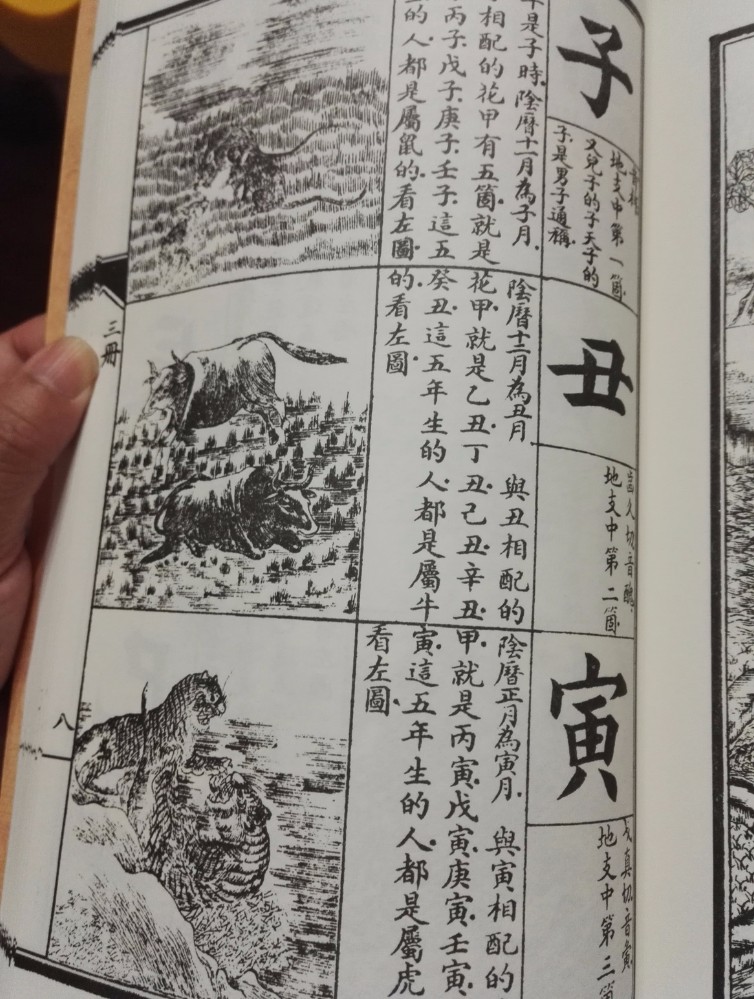 子
地支中第一箇
又兒子的子天子的
子.是男子通稱.
是子時.陰曆十一月為子月.
相配的花甲有五箇.就是
丙子.戊子.庚子.壬子.這五
的人都是屬鼠的.看左圖.
丑
久切音醜.
地支中第二箇.
陰曆十二月為丑月 與丑相配的
花甲就是乙丑.丁丑.己丑.辛丑.
癸丑.這五年生的人.都是屬牛
的.看左圖.
寅
真切音寅
地支中第三箇
陰曆正月為寅月. 與寅相配的
甲.就是丙寅.戊寅.庚寅.壬寅.
寅.這五年生的人.都是屬虎
看左圖.
三冊
八